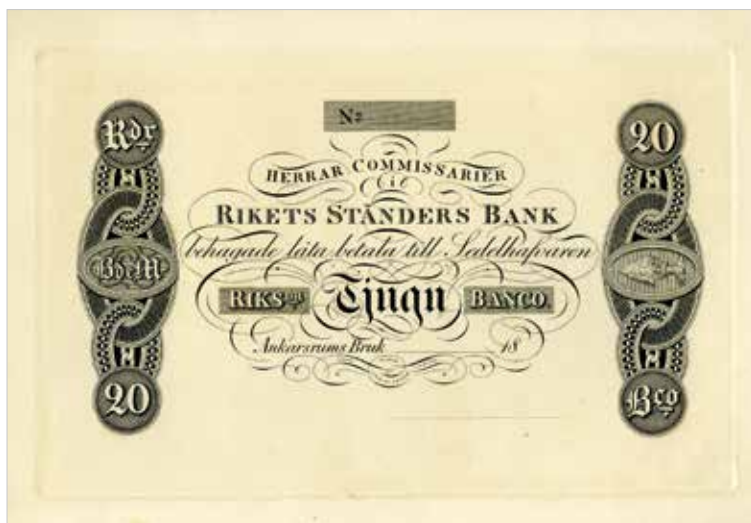 Rdr
20
No
HERRAR COMMISSARIER
til
RIKETS STÄNDERS BANK
behagade låta betala till Sedelhafvaren
RIKSDR Tjugu BANCO.
Ankarsrums Bruk 18
20
Bco